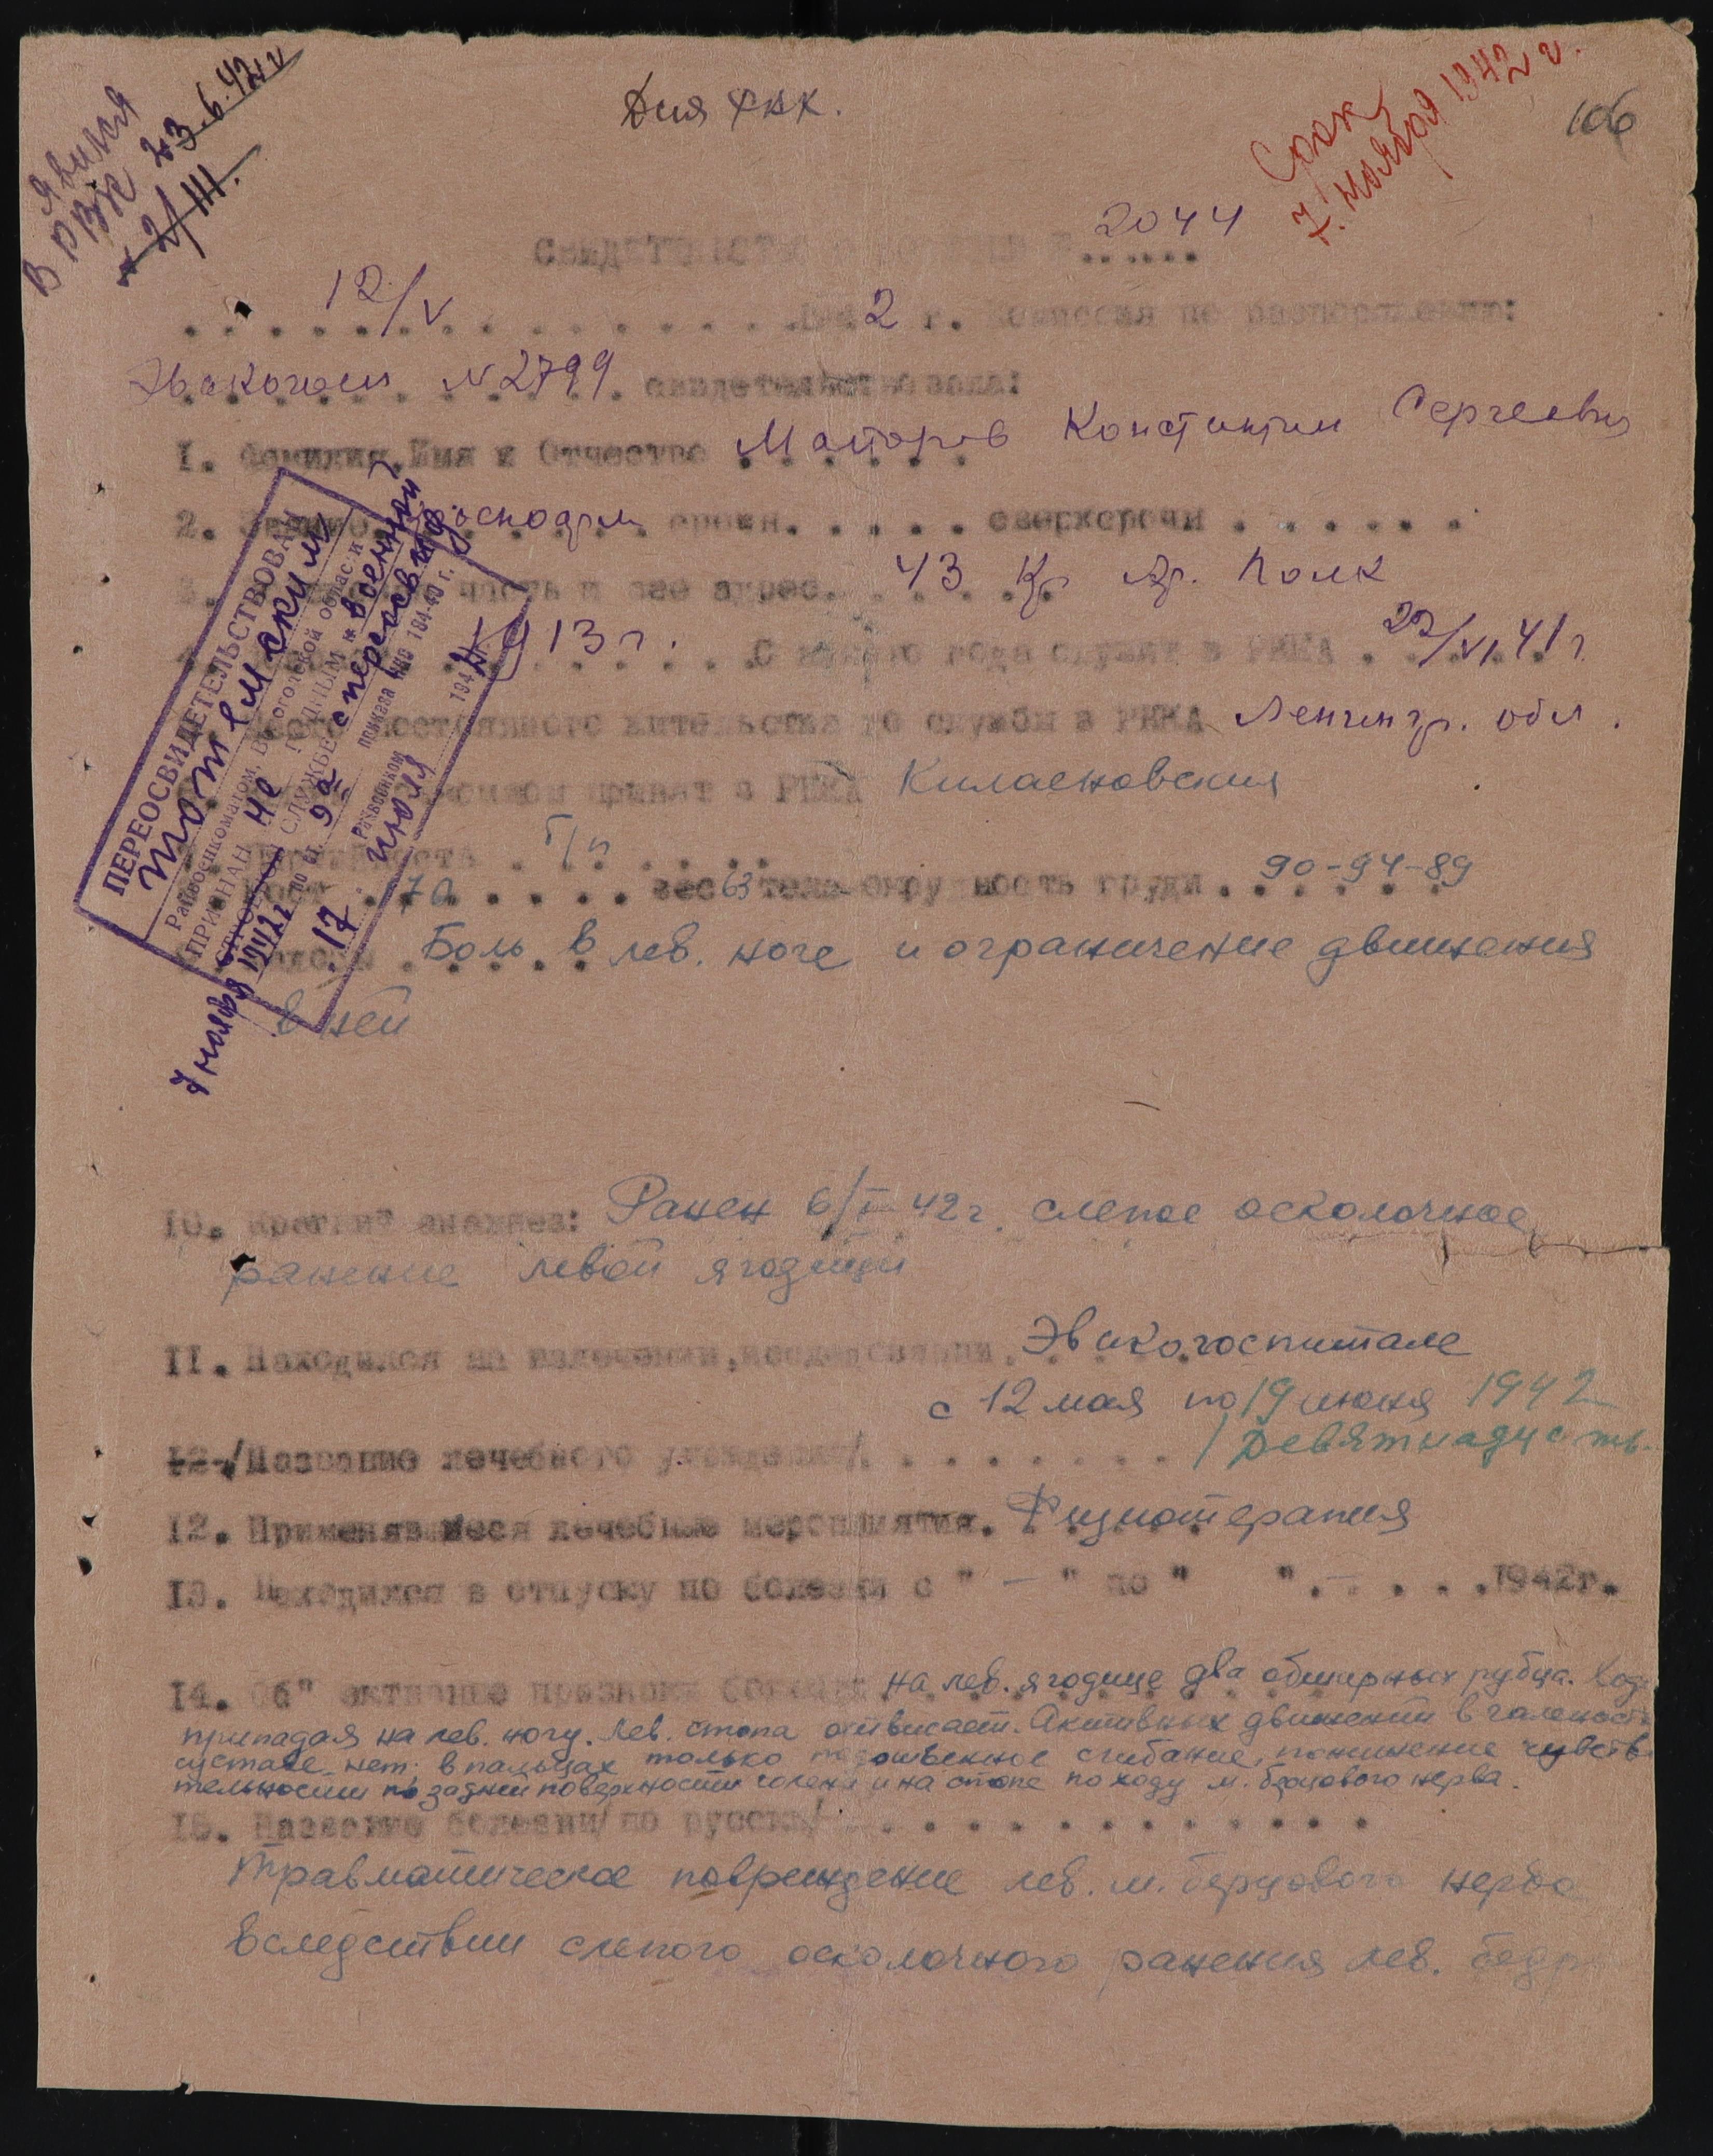 Для РВК.
106
Явился
в РВК 23.6.42 г
21/III.
Срок
7. ноября 1942 г.
Свидетельство о болезни №...... 2044
12/V 1942 г. Комиссия по распоряжению:
Эвакогосп. №2799 свидетельствовала:
1. Фамилия, Имя и Отчество Майоров Константин Сергеевич
2. Звание срочн. . . . . . сверхсрочн . . . . . .
3. часть и ее адрес. 43 Кр Ар. Полк
1913 г. С какого года служит в РККА 22/VI.41 г.
Место постоянного жительства до службы в РККА Ленингр. обл.
принят в РККА
б/п
Рост 7а вес 63 тела окружность груди 90-94-89
Боль в лев. ноге и ограничение движения
в ней
ПЕРЕОСВИДЕТЕЛЬСТВОВАН
Тотемским
Райвоенкоматом, Вологодской области
ПРИЗНАН не ГОДНЫМ к военной
СТРОЕВОЙ СЛУЖБЕ с переосвид
7 ноября 1942 г по ст. 9а приказа НКО 194-40 г.
Райвоенком
17 июля 1942
10. Краткий анамнез: Ранен 6/I 42 г. слепое осколочное
ранение левой ягодицы
11. Находился на излечении, исследовании Эвакогоспитале
с 12 мая по 19 июня 1942
12 /Название лечебного учреждения/ . . . . . . . / Девятнадцать
12. Применявшиеся лечебные мероприятия. Физиотерапия
13. Находился в отпуску по болезни с " — " по " ". . . . . 1942г.
14. Об"ективные признаки болезни на лев. ягодице два обширных рубца. Ходит
припадая на лев. ногу. Лев. стопа отвисает. Активных движений в голеност.
суставе нет. в пальцах только подошвенное сгибание, понижение чувств
тельности по задней поверхности голени и на стопе по ходу м. берцового нерва.
15. Название болезни/по русски/ . . . . . . . . . . . .
Травматическое повреждение лев. м. берцового нерва
вследствии слепого осколочного ранения лев. бедра